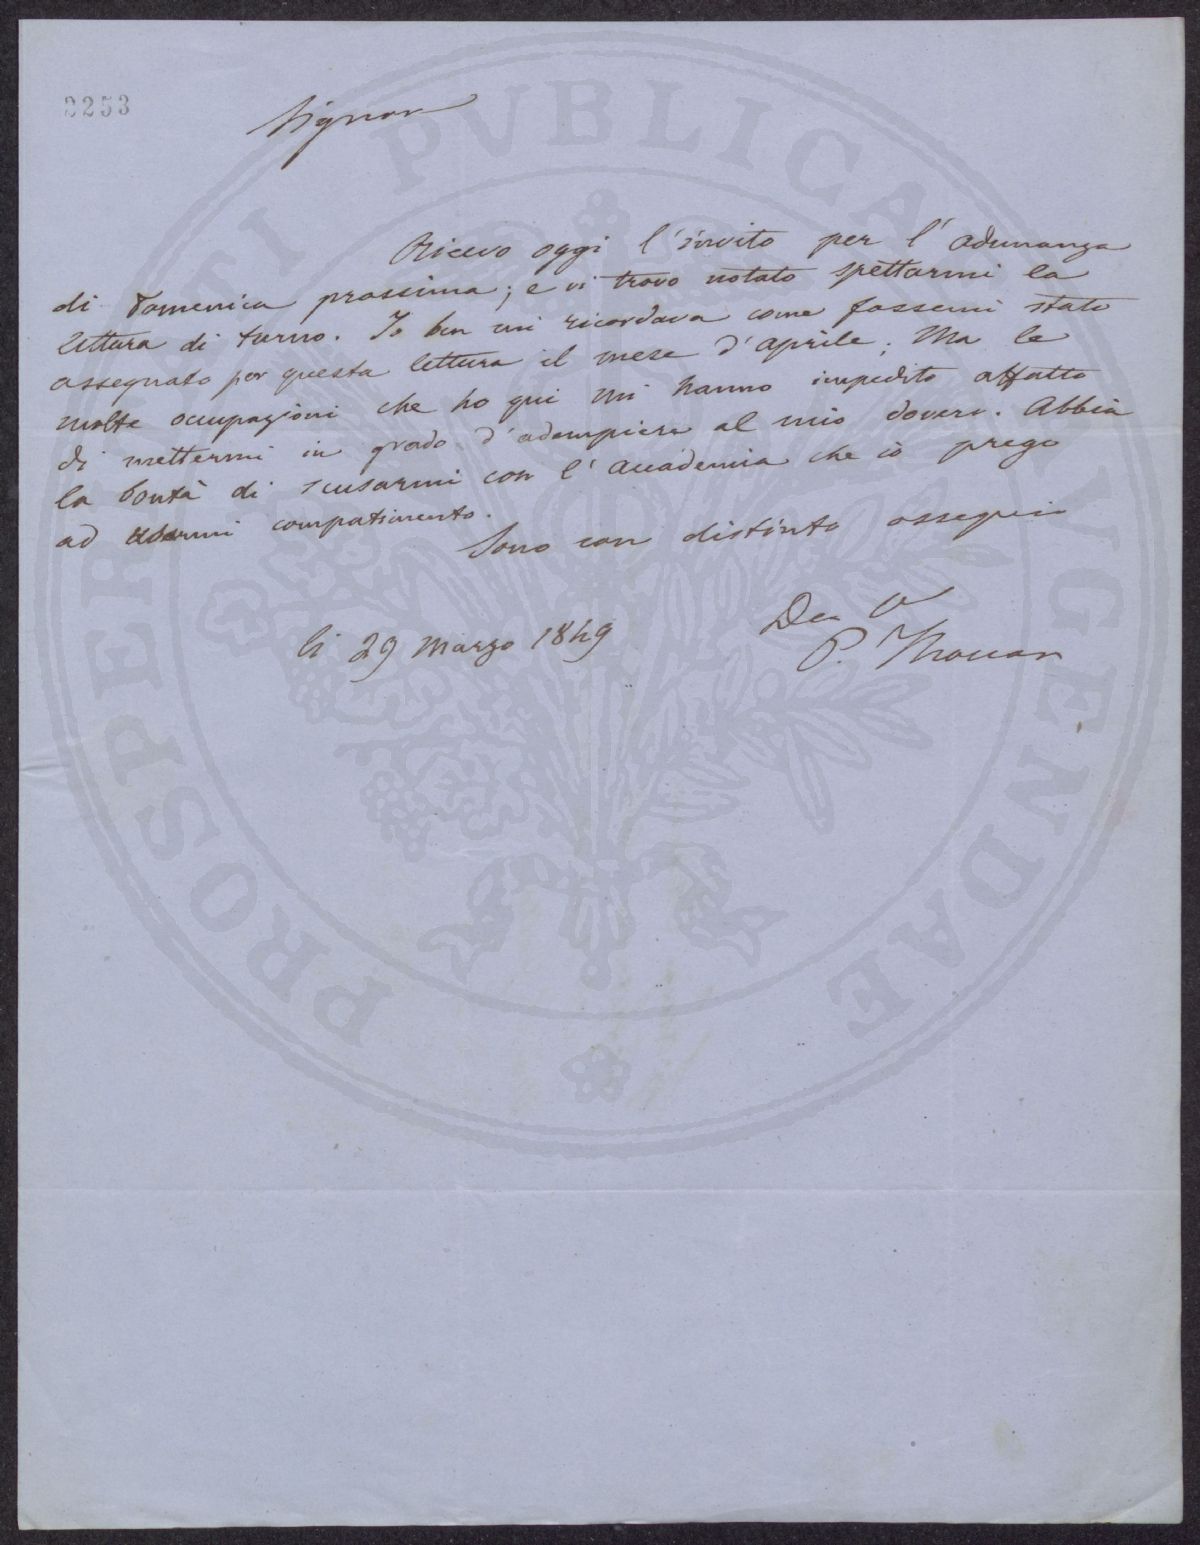 2253
Signore
Ricevo oggi l'invito per l'adunanza
di Domenica prossima; e vi trovo notato spettarmi la
lettura di turno. Io ben mi ricordava come fossemi stato
assegnato per questa lettura il mese d'aprile. Ma le
molte occupazioni che ho qui mi hanno impedito affatto
di mettermi in grado d'adempiere al mio dovere. Abbia
la bontà di scusarmi con l'Accademia che io prego
ad usarmi compatimento.
Sono con distinto ossequio
li 29 Marzo 1849
P. Thouar
PROSPERITATI PVBLICAE AVGENDAE